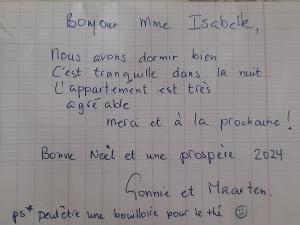 Bonjour Mme Isabelle,
Nous avons dormir bien
C'est tranquille dans la nuit
L'appartement est très
agréable
merci et à la prochaine!
Bonne Noël et une prospère 2024
Connie et Maarten.
ps* peutêtre une bouilloire pour le thé ☺